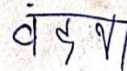 वंदना